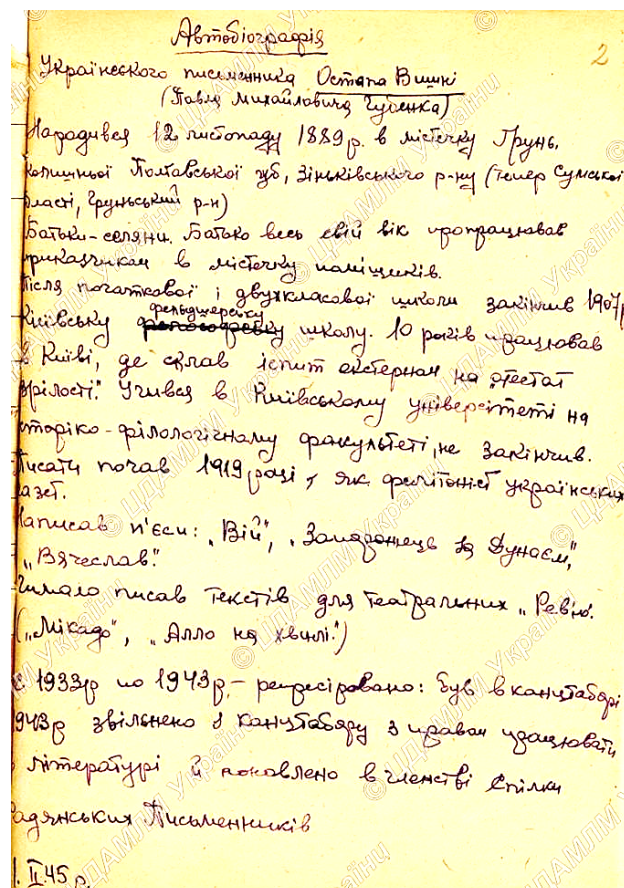 Автобіографія
2
Українського письменника Остапа Вишні
(Павла Михайловича Губенка)
Народився 12 листопаду 1889 р. в містечку Грунь,
колишньої Полтавської губ, Зіньківського р-ну (тепер Сумської
області, Груньський р-н)
Батьки-селяни. Батько весь свій вік пропрацював
приказчиком в містечку поміщиків.
Після початкової і двухкласової школи закінчив 1907 р
Київську фельдшерську школу. 10 років працював
в Київі, де склав іспит екстерном на "атестат
зрілості". Учився в Київському університеті на
історіко-філологічному факультеті, не закінчив.
Писати почав 1919 році, як фейлітоніст українських
газет.
Написав п'єси: "Вій", "Запорожець за Дунаєм",
"Вячеслав".
Чимало писав текстів для театральних "Рев'ю".
("Мікадо", "Алло на хвилі")
З 1933р по 1943р. – репресіровано: був в концтаборі
1943р звільнено з концтабору з правом працювати
в літературі й поновлено в членстві Спілки
Радянських Письменників
1. II 45 р.
© ЦДАМЛМ України